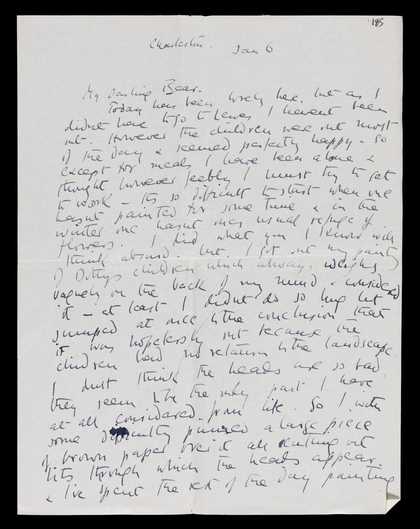 185
Charleston.
Jan 6
My darling Bear.
Today has been lovely here, but as I
didnt have to go to Lewes I havent been
out. However the children were out most
of the day & seemed perfectly happy - so
except for meals I have been alone &
thought however feebly I must try to get
to work - its so difficult to start when one
hasnt painted for some time & in the
winter one hasnt ones usual refuge of
flowers. I did what you I know will
think absurd. but I got out my painting
of children which always weighs
vaguely on the back of my mind & considered
it - at least I didnt do so long but
jumped at once to the conclusion that
it was hopelessly out because the
children had no relation to the landscape.
I dont think the heads are so bad.
they seem to be the only part I have
at all considered from life. So I with
some difficulty pinned a large piece
of brown paper over it all cutting out
bits through which the heads appear.
& I've spent the rest of the day painting